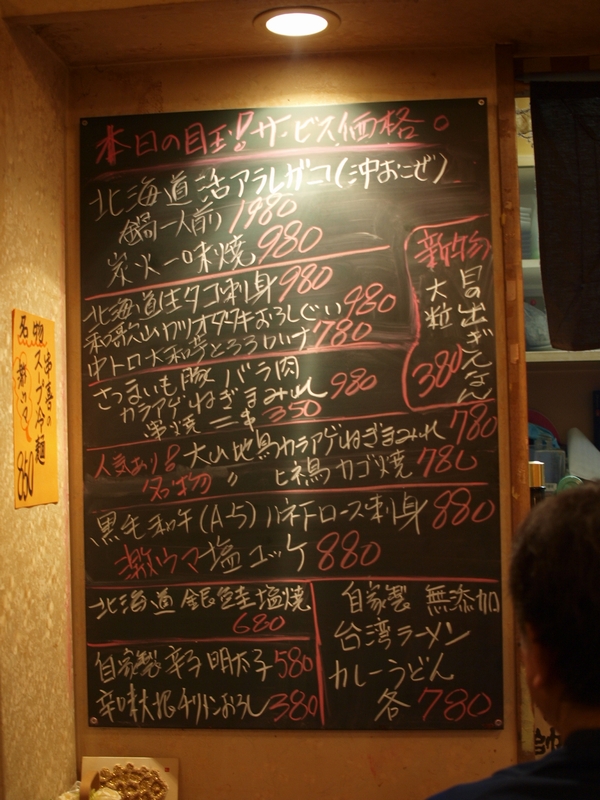 本日の目玉!サービス価格。
北海道活アラレガコ(沖おこぜ)
鍋一人前1980
炭火一味焼980
北海道生タコ刺身980
和歌山カツオタタキおろしぐい980
中トロ大和芋とろろ
780
さつまいも豚バラ肉
カラアゲねぎまみれ980
串焼二本350
新物
大粒
目の出ぎんなん
380
人気あり!大山地鳥カラアゲねぎまみれ780
名物〃ヒネ鳥カゴ焼780
黒毛和牛(A-5)ハネ下ロース刺身880
激ウマ塩ユッケ880
北海道銀鮭塩焼
680
自家製辛子明太子580
辛味大根チリトンおろし380
自家製無添加
台湾ラーメン
カレーうどん
各780
名物
串喜の
スープ冷麺
860